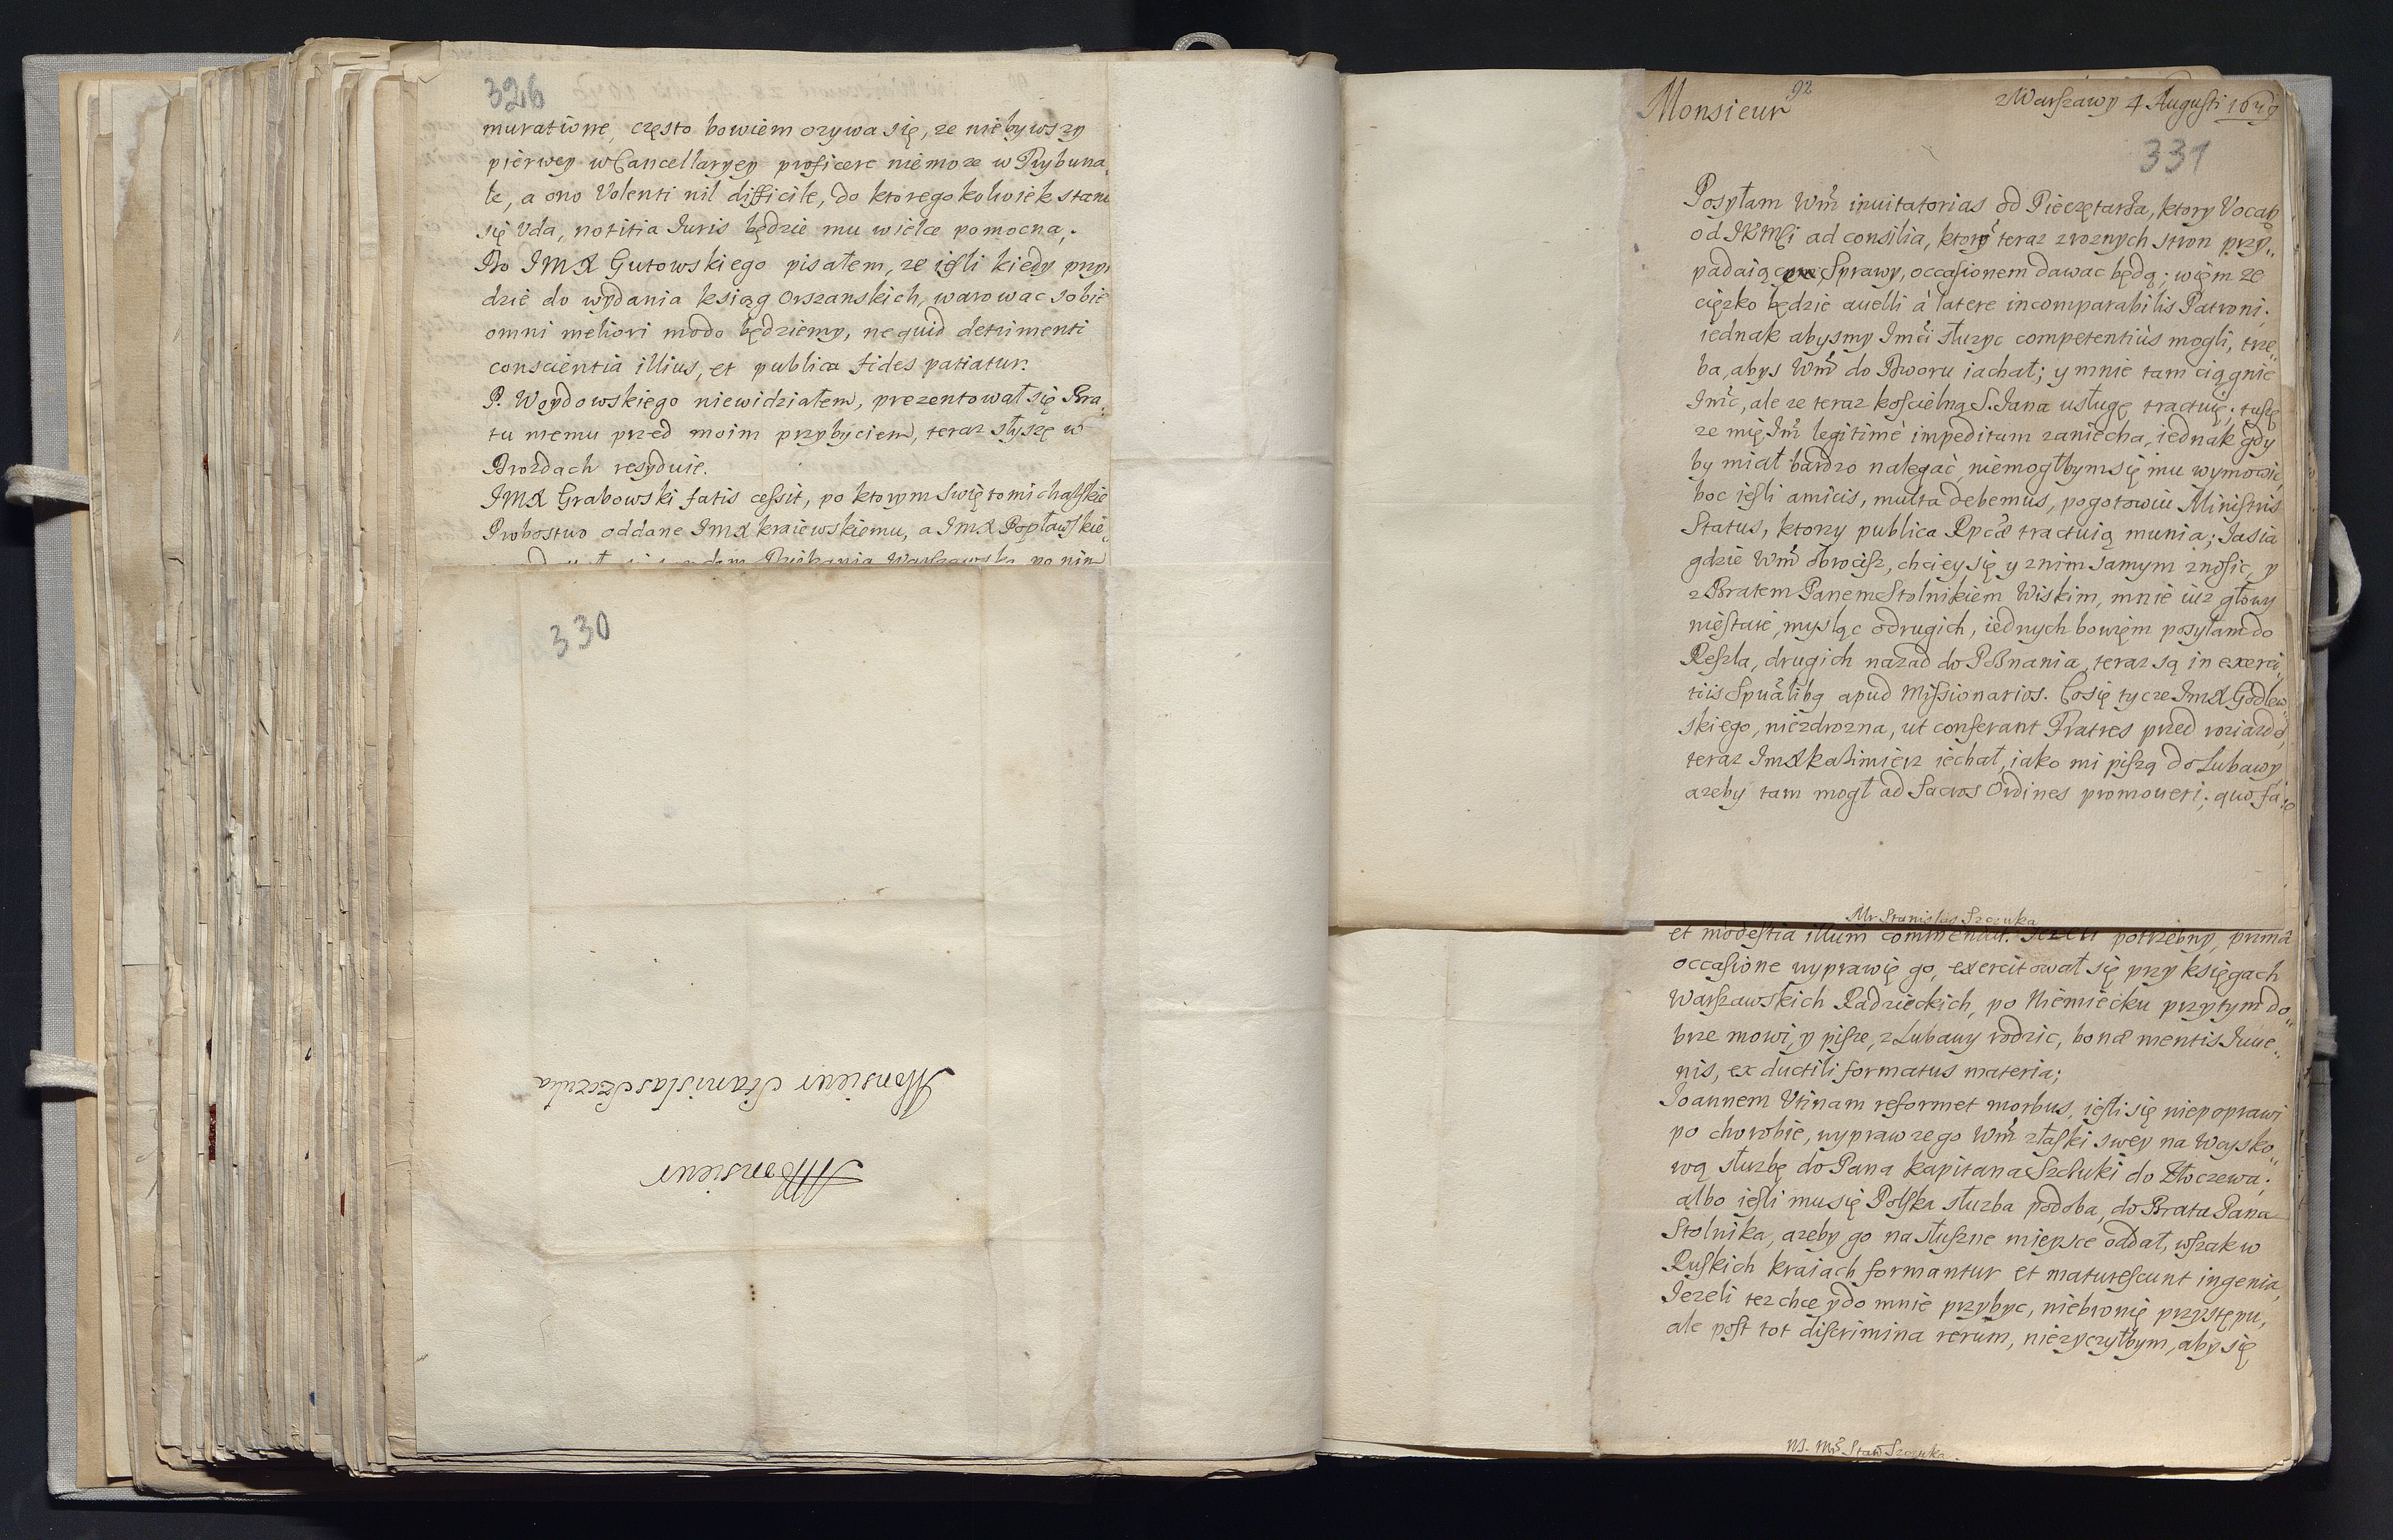 326
muratione, często bowiem ozywa się, ze niebywszy
pierwey w Cancellaryey proficere niemoze w Trybuna„
le, a ono Volenti nil difficile, do ktoregokolwiek stanu
się Vda, notitia Iuris będzie mu wielce pomocna.
Do IMX Gutowskiego pisałem, ze iesli kiedy przyi
dzie do wydania ksiąg Orszanskich, warowac sobie
omni meliori modo będziemy, ne quid detrimenti
conscientia illius, et publica fides patiatur.
P. Woydowskiego niewidziałem, prezentował się Bra„
tu memu przed moim przybyciem, teraz słyszę w
Drozdach resyduie.
IMX Grabowski fatis cessit, po ktorym Swiętomichalskie
Probostwo oddane ImX kraiewskiemu, a ImX Popławskie„
Dziekania Warszawska po nim
330
Monsieur
Monsieur Stanislas Szczuka
Monsieur
92
z Warszawy 4 Augusti 1679
331
Posyłam Wm̃ inuitatorias od Pieczętarza, ktory Vocat
od IKMCi ad consilia, ktorẏ teraz zroznych stron przy„
padaiące Sprawy, occasionem dawac będą; wiem ze
cięzko będzie auelli à latere incomparabilis Patroni;
iednak abysmy Imci słuzyc competentiùs mogli, trze„
ba, abys Wm̃ do Dworu iachał; y mnie tam ciągnie
Imc, ale ze teraz koscielną S. Iana usługę tractuię; tuszę
ze mię Im̃ legitimè impeditam zaniecha, iednak gdy
by miał bardzo nalegać, niemogłbym się mu wymowic,
boc iesli amicis, multa debemus, pogotowiu Ministris
Status, ktorzy publica Rpcæ tractuią munia; Iasia
gdzie Wm̃ obrocisz, chciey się y znim samym znosic, y
z Bratem Panem Stolnikiem Wiskim, mnie iuz głowy
niestaie, mysląc odrugich, iednych bowiem posyłam do
Reszla, drugich nazad do Posnania, teraz są in exerci„
tiis Spuãlibq apud Missionarios. Co się tycze ImX Godlew„
skiego, niezdrozna, ut conferant Fratres przed roziazdẽ,
teraz ImX kazimierz iechał, iako mi piszą do Lubawy,
azeby tam mogł ad Sacros Ordines promoueri; quo fa„
Mr Stanislas Szczuka
et modestia illum commendat. Iezeli potrzebny, primâ
occasione wyprawię go, exercitował się przy księgach
Warszawskich Radzieckich, po Niemiecku przytym do„
brze mowi, y pisze, z Lubawy rodzic, bonæ mentis Iuue„
nis, ex ductili formatus materia;
Ioannem Vtinam reformet morbus, iesli się niepoprawi
po chorobie, wypraw zego Wm̃ złaski swey na Woysko„
wą słuzbę do Pana kapitana Szczuki do Złoczewa;
albo iesli mu się Polska słuzba podoba, do Brata Pana
Stolnika, azeby go na słuszne mieysce oddał, wszak w
Ruskich kraiach formantur et maturescunt ingenia,
Iezeli tez chce ydo mnie przybyc, niebronię przystępu,
ale post tot discrimina rerum, niezyczyłbym, aby się
Mr Stan Szczuka